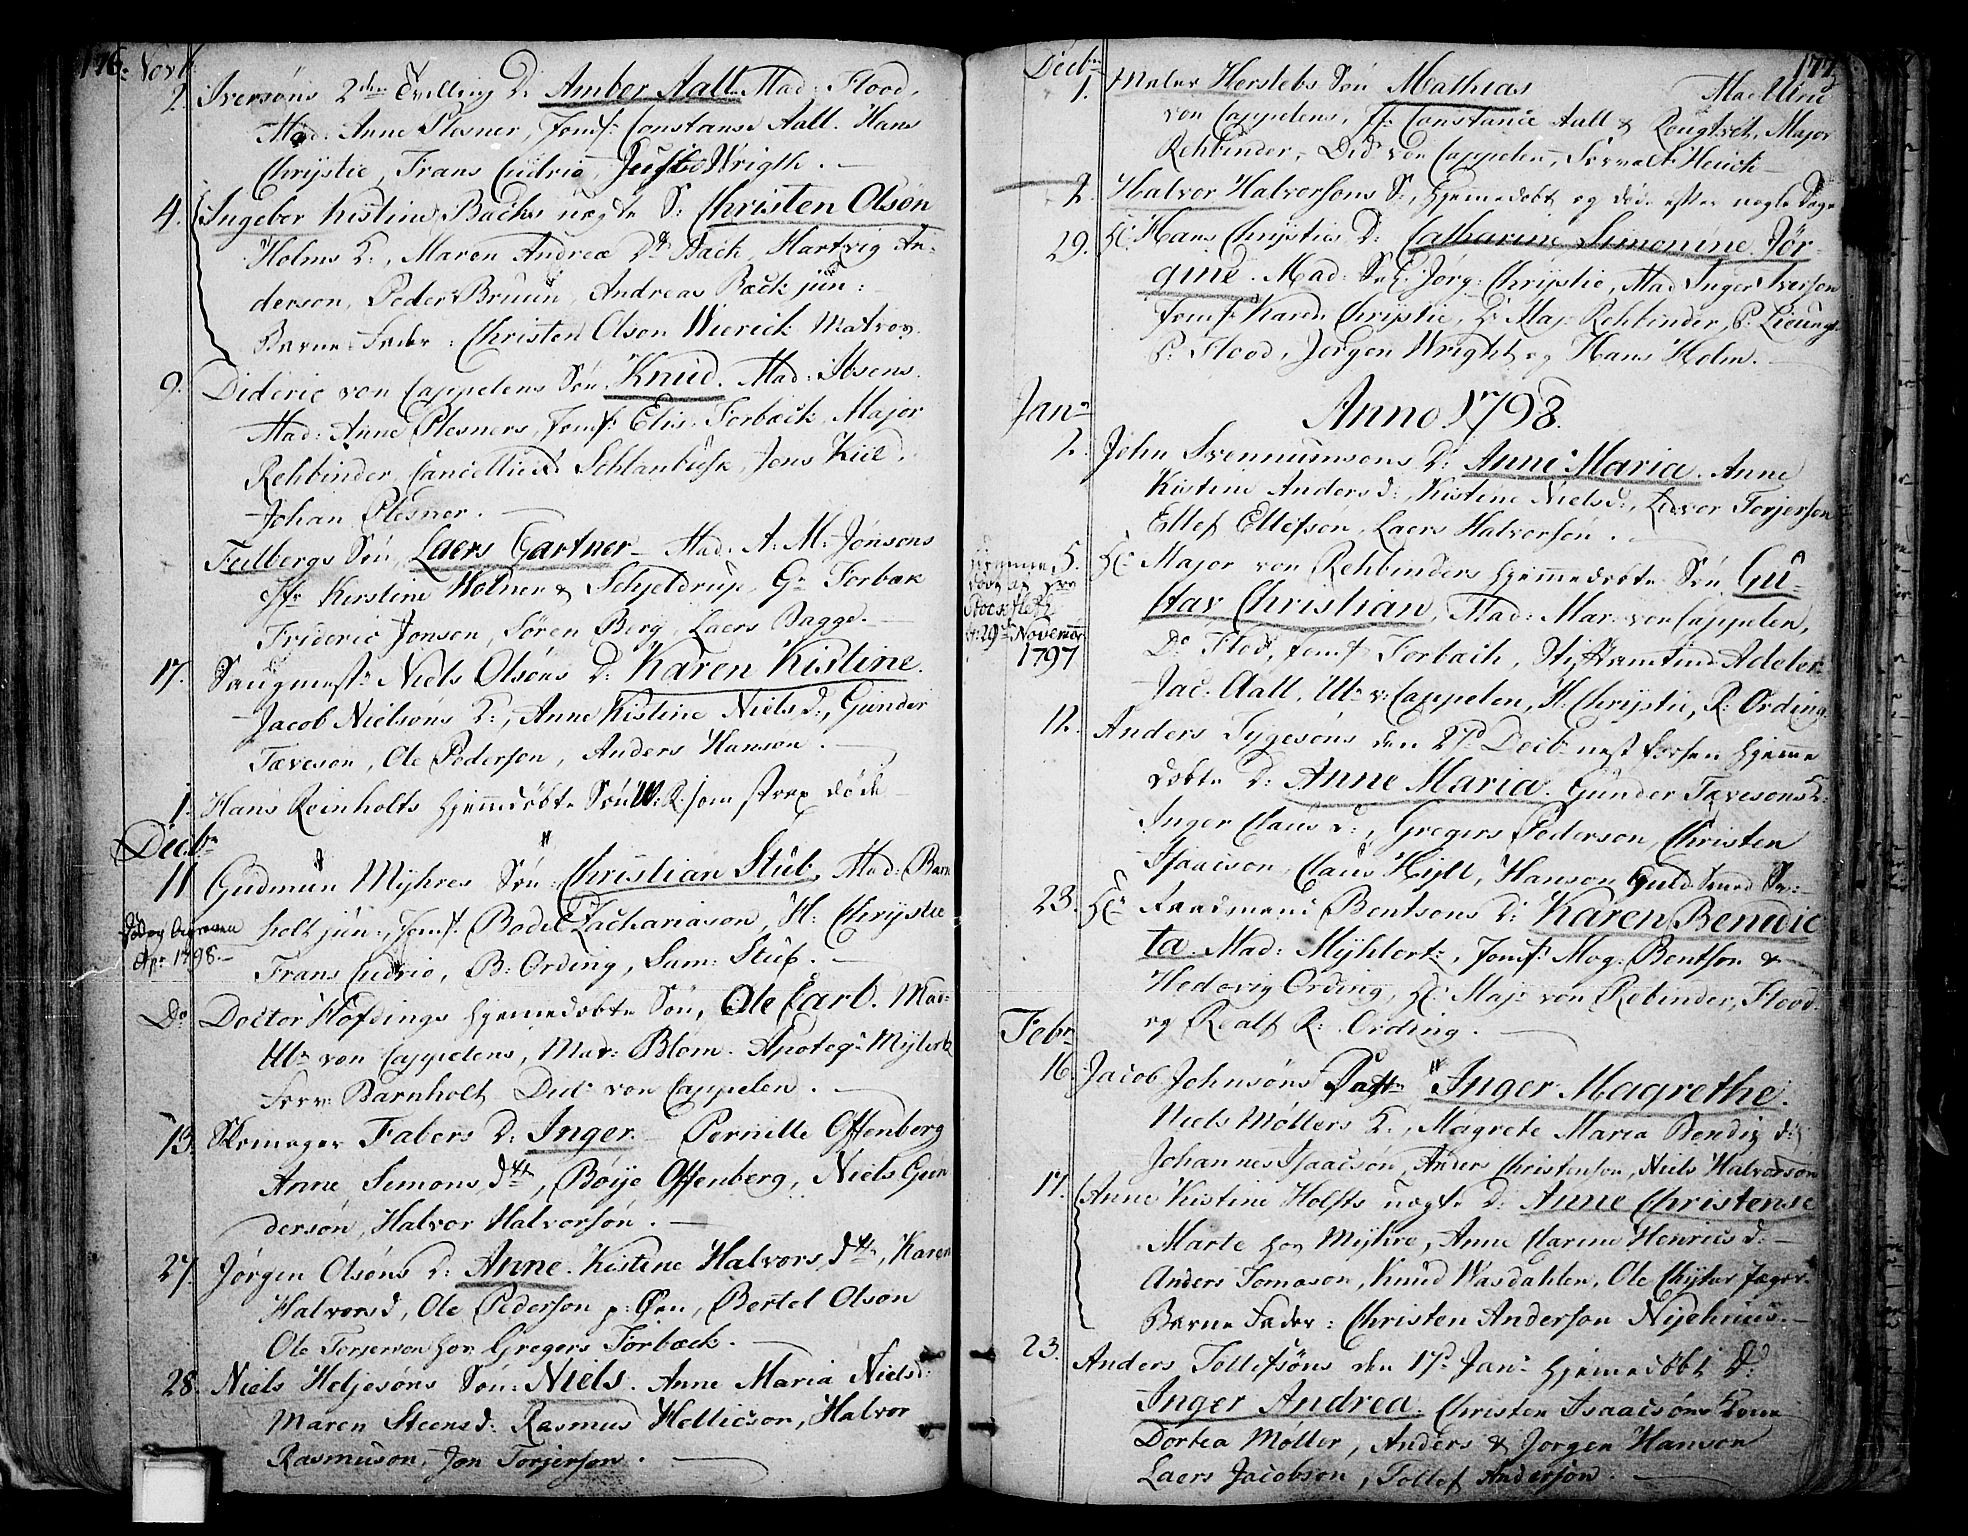 176. Novb:
2. Iversöns 2den Tvilling D: Amber Aall. Mad: Flood,
Mad: Anne Plesner, Jomf: Constanse Aall. Hans
Chrystie, Frans Cudrio, Wrigth.
4. Ingeber Kistine Backs uægte S: Christen Olsön
Holms K., Maren Andrea Dtr Back, Hartvig An-
derson, Peder Bruun, Andreas Back jün:
Barne-Fader: Christen Olson Wierick Matros.
9. Dideric von Cappelens Sön Knud. Mad: Ibsens.
Mad: Anne Plesners, Jomf: Elis: Forback. Major
Rehbinder, Cancellieraad Schlanbusk, Jens Kiil.
Johan Plesner.
Feilbergs Sön, Laers Gartner. Mad: A: M: Jönsons
Jfr Kerstine Holmer & Schjeldrup, Gr Forbak
Frideric Jonson, Sören Berg, Laers Bagge.
17. Saugmestr Niels Olsöns D: Karen Kistine.
Jacob Nielsöns K:, Anne Kistine Niels d:, Gunder
Taveson, Ole Pederson, Anders Hanson.
1. Hans Reinholts hjemmdöbte Sön som strax döde
Decbr
11 Gudmun Myhres Sön: Christian Stub, Mad: Barn
holt jün:, Jomf: Bodel Zachariason, H: Chrystie
Frans Cudrio, B: Ording, Sam: Stub.
Död og begraven
Apr: 1798.
Do Doctor Höfdings hjemmedöbte Sön, Ole Carl. Mad:
Ulr von Cappelens, Mad: Blom. Apoteqr Mylertz
Forv: Barnholt, Did: von Cappelen.
13. Skomager Fabers D: Inger. Pernille Offenberg
Anne Simons dtr, Böye Offenberg, Niels Gün
dersön, Halvor Halvorsön.
27 Jörgen Olsöns D: Anne. Kistine Halvors dtr, Karen
Halvorsd, Ole Pederson p: Öen, Bertel Olson
Ole hos Gregers Forback.
28. Niels Heljesöns Sön: Niels. Anne Maria Nielsd:
Maren Steensd: Rasmus Hellicson, Halvor
Rasmuson, Jon Torjerson.
Decbr 177.
1. Maler Herslebs Sön Mathias Mad Ulric
von Cappelens, Jfr Constance Aall & Rougtvet, Major
Rehbinder, Did von Cappelen,
2. Halvor Halvorsons S:, hjemmedöbt og döde efter nogle Dage
29. Hr Hans Chrysties D: Catharine Simonine Jör-
gine. Mad: Sal: Jörg: Chrystie, Mad Inger Iverson
Jomf: Karen Chrystie, Hr Maj: Rehbinder, P: Lieungh
P: Flood, Jörgen Wright og Hans Holm.
Janr Anno 1798.
2. John Svennumsens D: Anne Maria. Anne
Kistine Anders d:, Kistine Nielsd:, Levor Torjerson
Ellef Ellefsön, Laers Halvorsön.
5. Hr Major von Rehbinders hjemmedöbte Sön Gu-
stav Christian, Mad: Mar: von Cappelen,
Do Flod, Jomf Forbach, Stiftsamtmd Adeler
Jac: Aall, Ulr v: Cappelen, H: Chrystie, R: Ording.
hjemme
döbt af Hr
d: 29de Novembr
1797
12. Anders Tygesöns den 27d Decbr næstforhen hjeme
döbte D: Anne Maria. Gunder Tavesons K:
Inger Claus d:, Gregers Pederson Christen
Isaacson, Claus Hejll, Hanson Guld Smed
23. Hr Bentsons D: Karen Benedic
ta. Mad: Myhlertz, Jomf: Mog: Bentson &
Hedevig Ording, Hr Maj: von Rebinder, Flood
og Realf R: Ording.
Febr
16. Jacob Johnsöns Datr Inger Magrethe.
Niels Möllers K:, Magrete Maria Bendix d:
Johannes Isaacsön, Anders Christenson, Niels Halvorsön
17. Anne Kistine Holsts uægte D: Anne Christense
Marte hos Myhre, Anne Carine Henrics d:
Anders Tomason, Knud Wasdahlen, Ole
Barne Fader: Christen Anderson Nyehuus.
23. Anders Tollefsöns den 17d Janr hjemmedöbt D:
Inger Andrea. Christen Isaacsöns Kone
Dortea Möller, Anders & Jorgen Hanson
Laers Jacobson, Tollef Anderson.